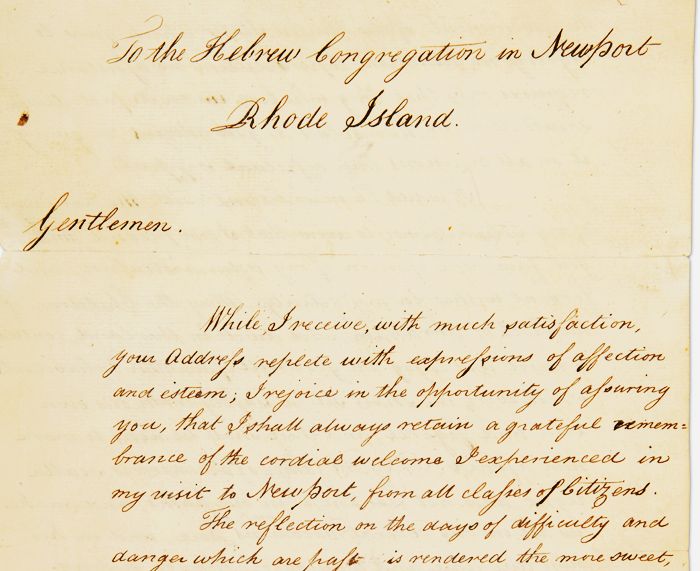 To the Hebrew Congregation in Newport
Rhode Island.
Gentlemen.
While, I receive, with much satisfaction,
your Address replete with expressions of affection
and esteem; I rejoice in the opportunity of assuring
you, that I shall always retain a grateful remem=
brance of the cordial welcome I experienced in
my visit to Newport, from all classes of Citizens.
The reflection on the days of difficulty and
danger which are past is rendered the more sweet,